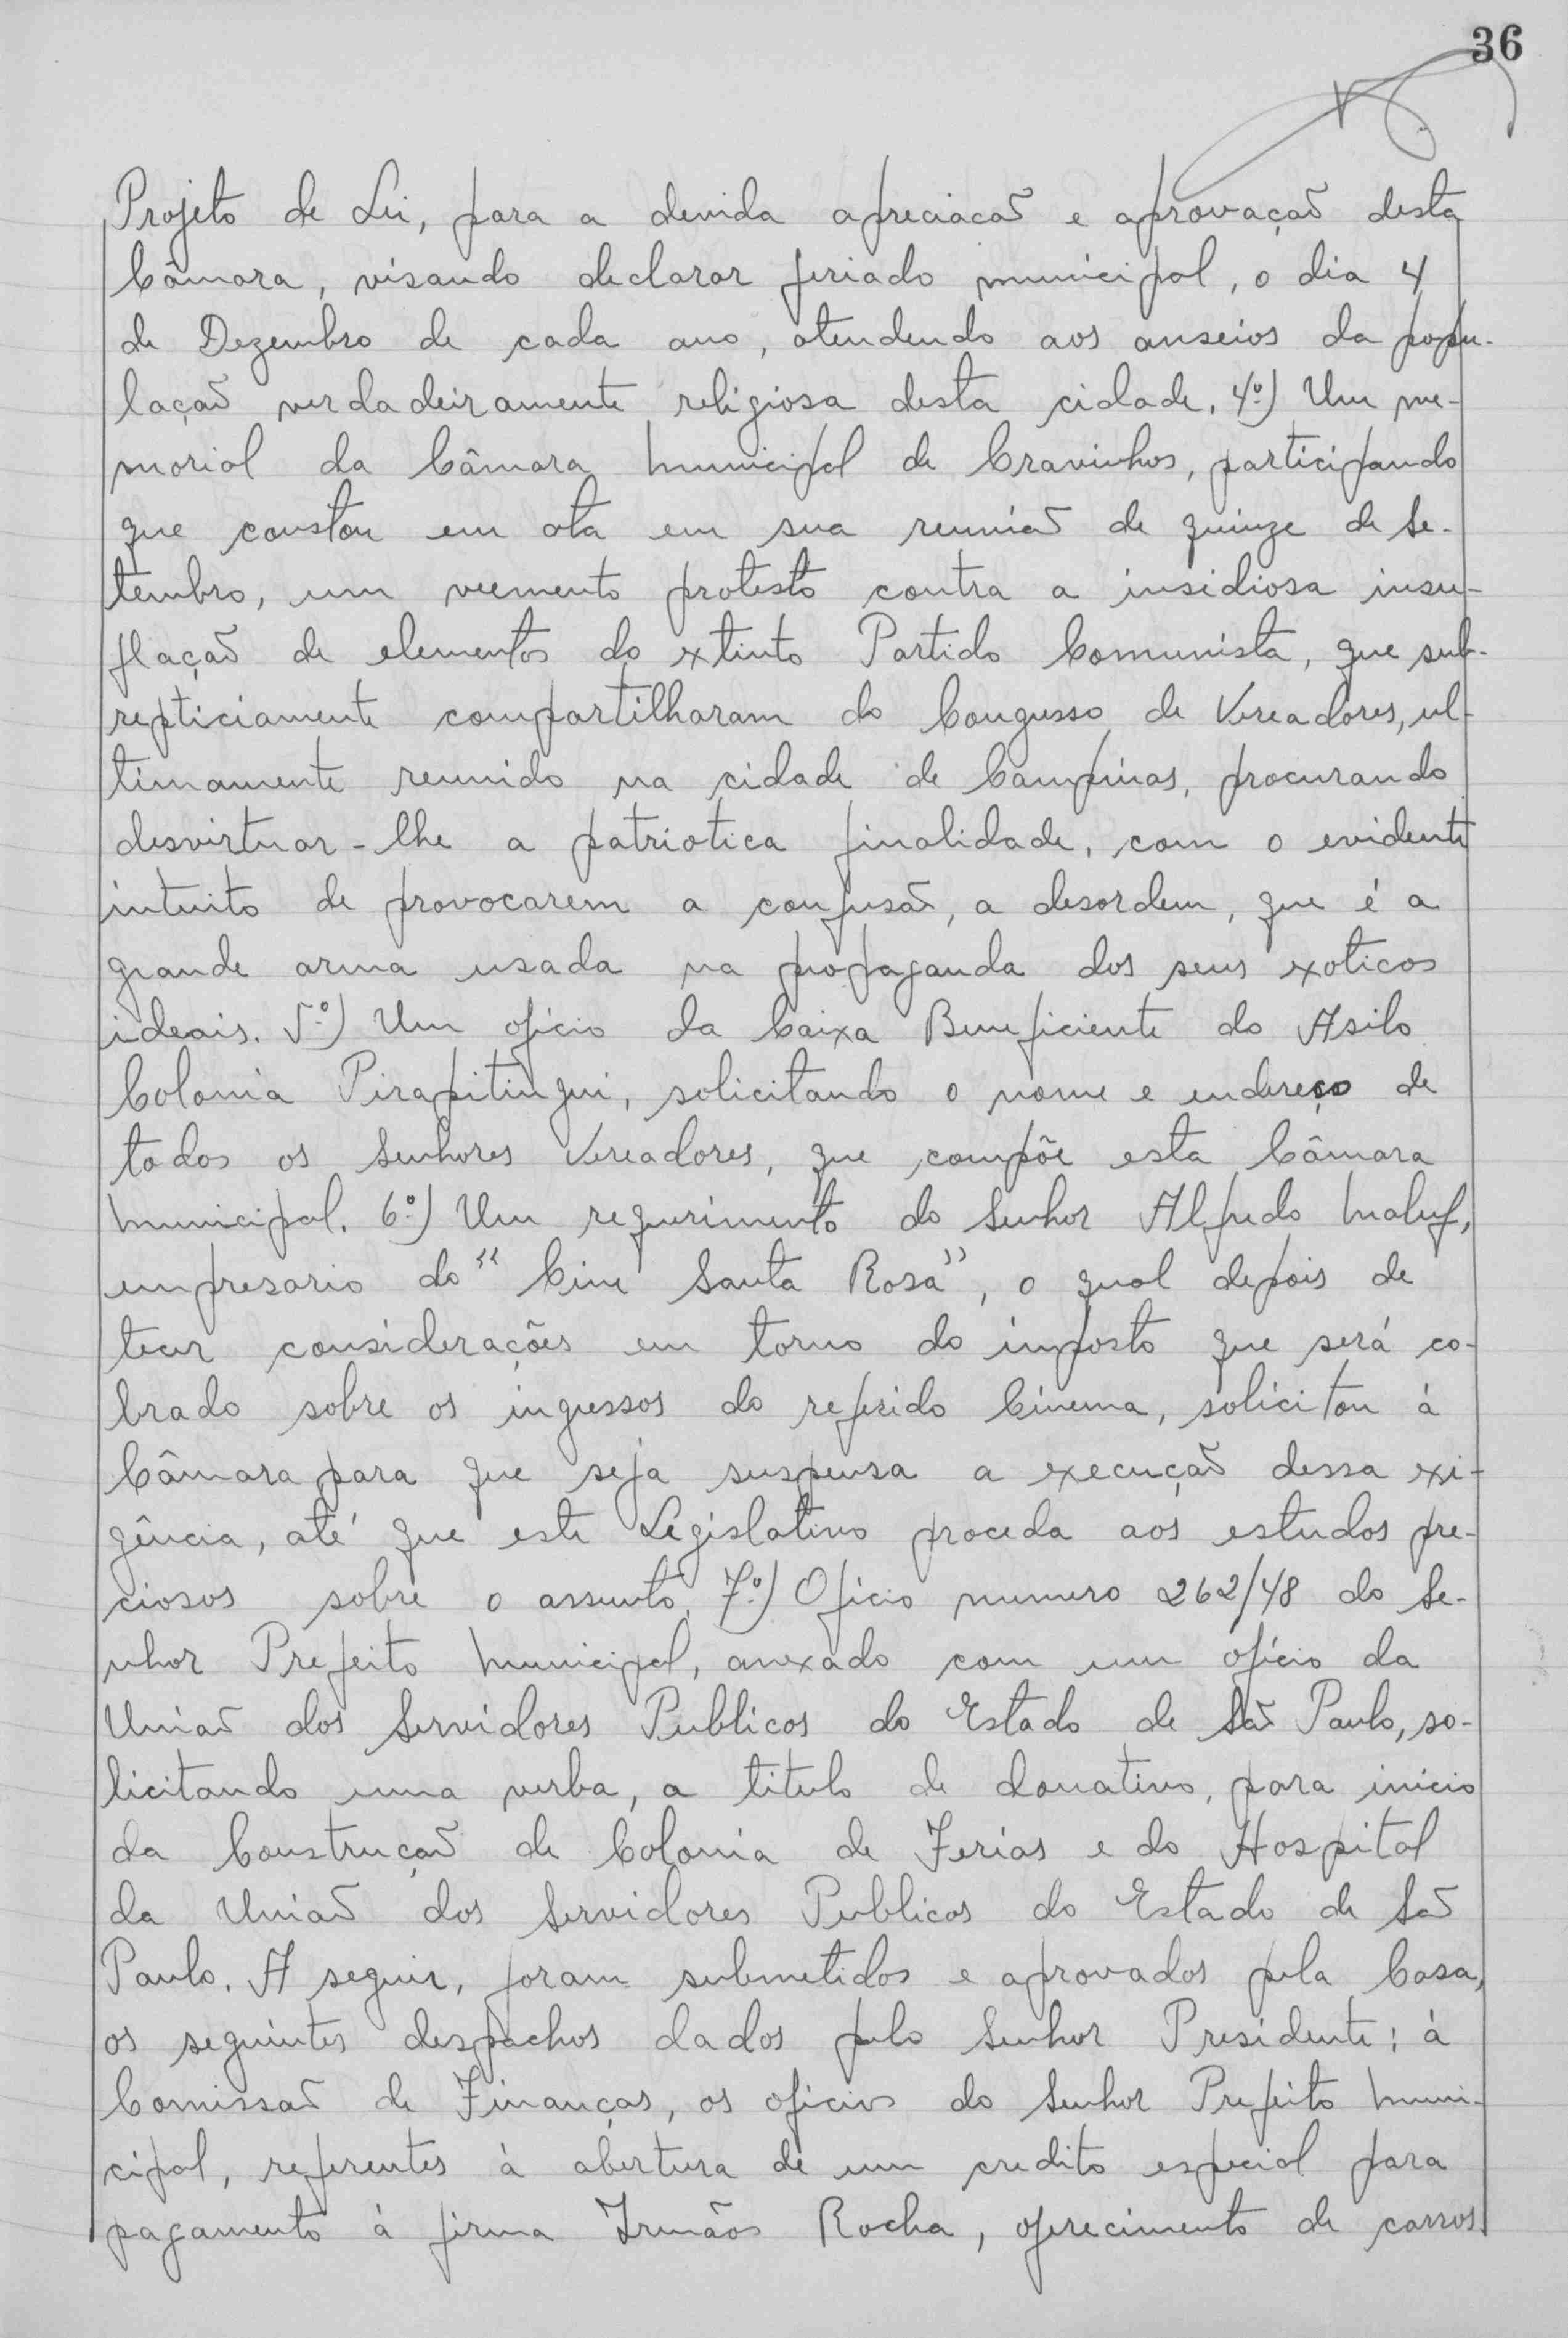 36
Projeto de Lei, para a devida apreciacaõ e aprovaçaõ desta
Câmara, visando declarar feriado municipal, o dia 4
de Dezembro de cada ano, atendendo aos anseios da popu-
laçaõ verdadeiramente religiosa desta cidade. 4º) Um me-
morial da Câmara Municipal de Cravinhos, participando
que constou em ata em sua reuniaõ de quinze de Se-
tembro, um veemento protesto contra a insidiosa insu-
flaçaõ de elementos do extinto Partido Comunista, que sub-
repticiamente compartilharam do Congresso de Vereadores, ul-
timamente reunido na cidade de Campinas, procurando
desvirtuar-lhe a patriotica finalidade, com o evidente
intuito de provocarem a confusaõ, a desordem, que é a
grande arma usada na propaganda dos seus exoticos
ideais. 5º) Um oficio da Caixa Beneficiente do Asilo
Colonia Pirapitingui, solicitando o nome e endereço de
todos os Senhores Vereadores, que compõe esta Câmara
Municipal. 6º) Um requerimento do Senhor Alfredo Maluf,
empresario do "Cine Santa Rosa", o qual depois de
tecer considerações em torno do imposto que será co-
brado sobre os ingressos do referido Cinema, solicitou á
Câmara para que seja suspensa a execuçaõ dessa exi-
gência, até que este Legislativo proceda aos estudos pre-
ciosos sobre o assunto. 7º) Oficio numero 262/48 do Se-
nhor Prefeito Municipal, anexado com um oficio da
Uniaõ dos Servidores Publicos do Estado de Saõ Paulo, so-
licitando uma verba, a titulo de donativo, para inicio
da Construçaõ de Colonia de Ferias e do Hospital
da Uniaõ dos Servidores Publicos do Estado de Saõ
Paulo. A seguir, foram submetidos e aprovados pela Casa,
os seguintes despachos dados pelo Senhor Presidente: á
Comissaõ de Finanças, os oficios do Senhor Prefeito Muni-
cipal, referentes à abertura de um credito especial para
pagamento á firma Irmãos Rocha, oferecimento de carros